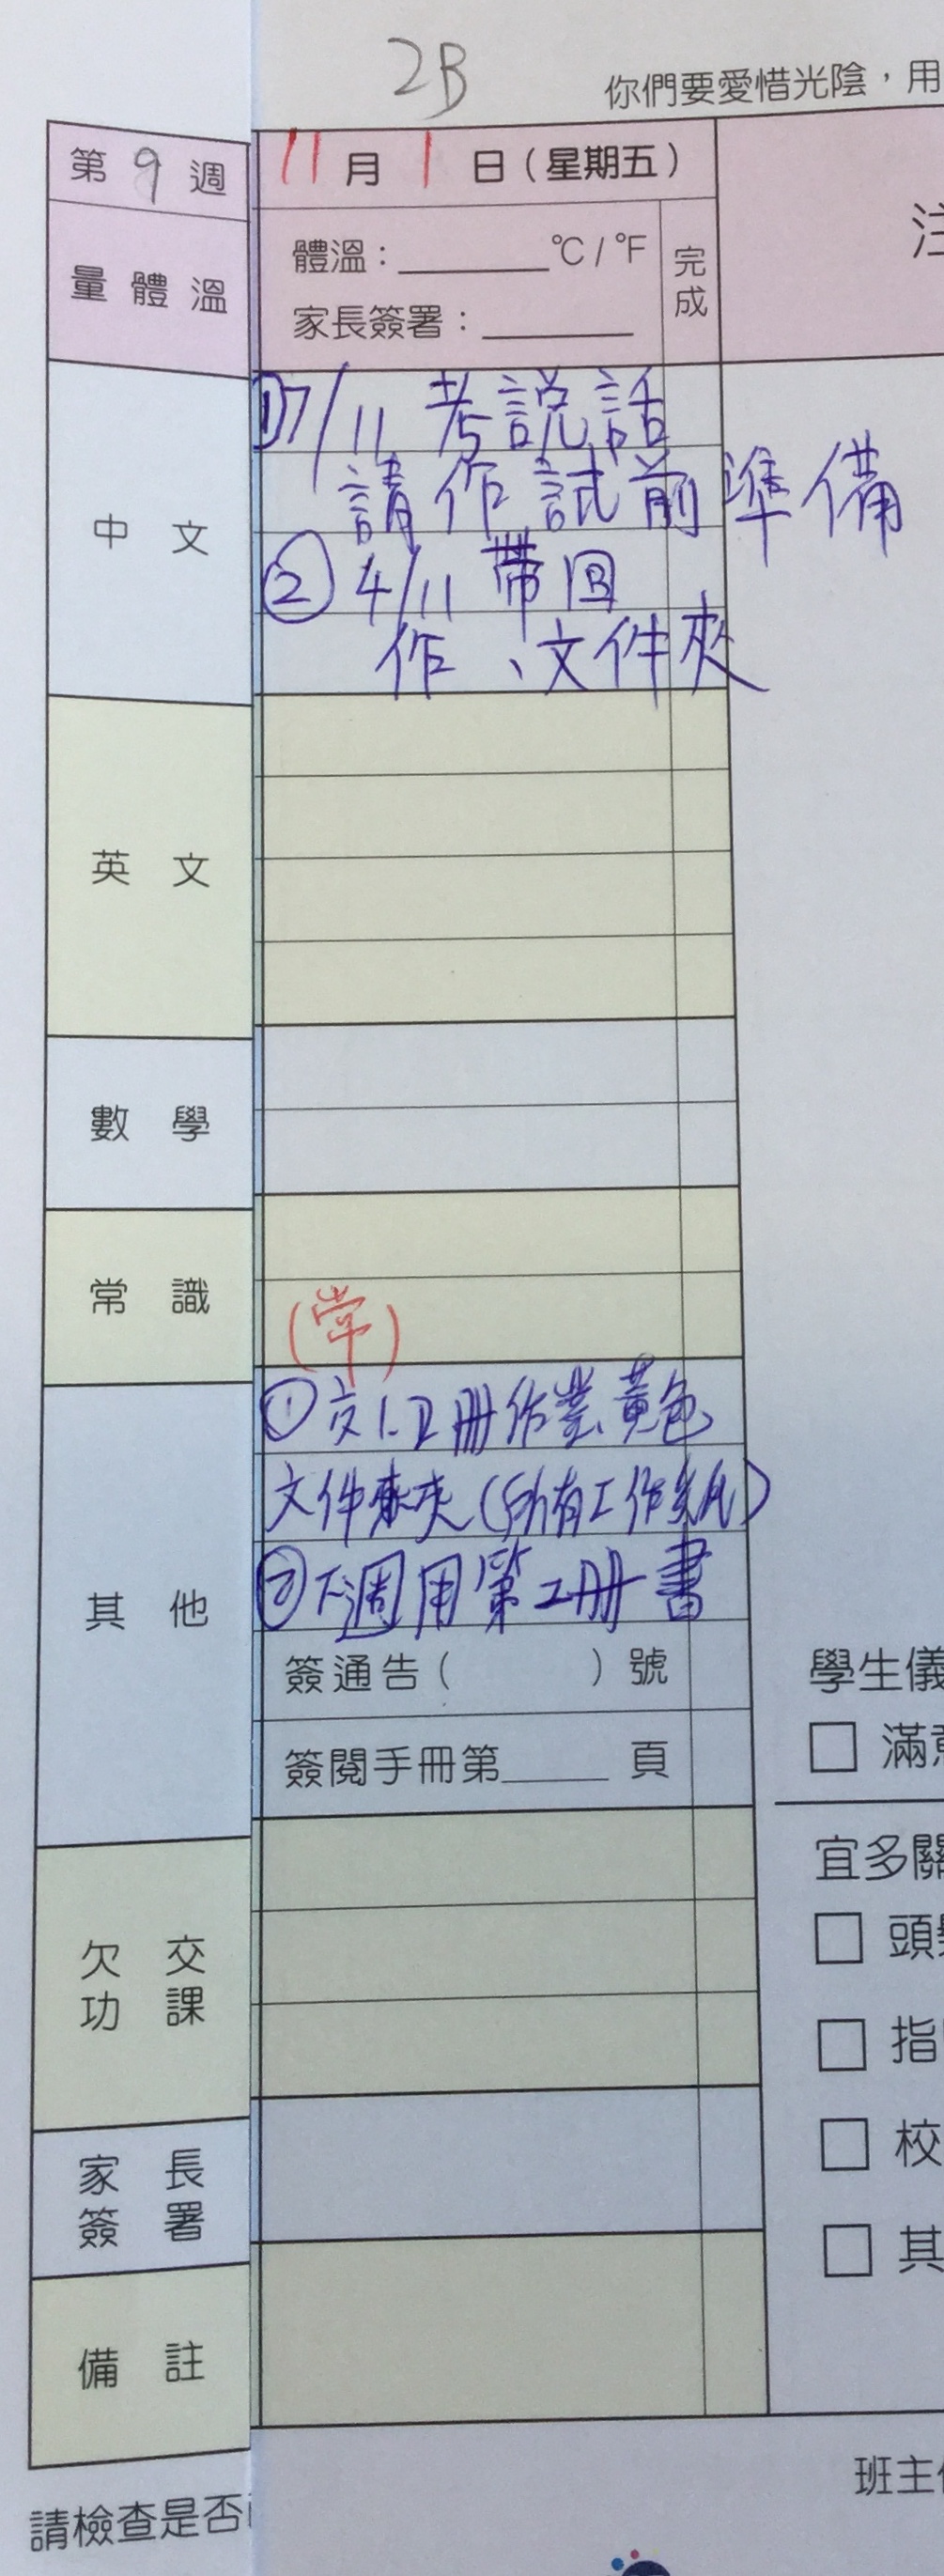 2B
你們要愛惜光陰,用
第9週
11月1日(星期五)
量體溫
體溫:______°C/°F
完成
家長簽署:______
注
中文
①7/11 考説話
請作試前準備
②4/11 帶回
作、文件夾
英文
數學
常識
(常)
其他
①交1.2冊作業、黃色
文件夾(所有工作紙)
②下週用第2冊書
簽通告( )號
簽閱手冊第____頁
學生儀
□ 滿意
宜多關
□ 頭髮
□ 指
□ 校
□ 其
欠交功課
家長簽署
備註
班主
請檢查是否